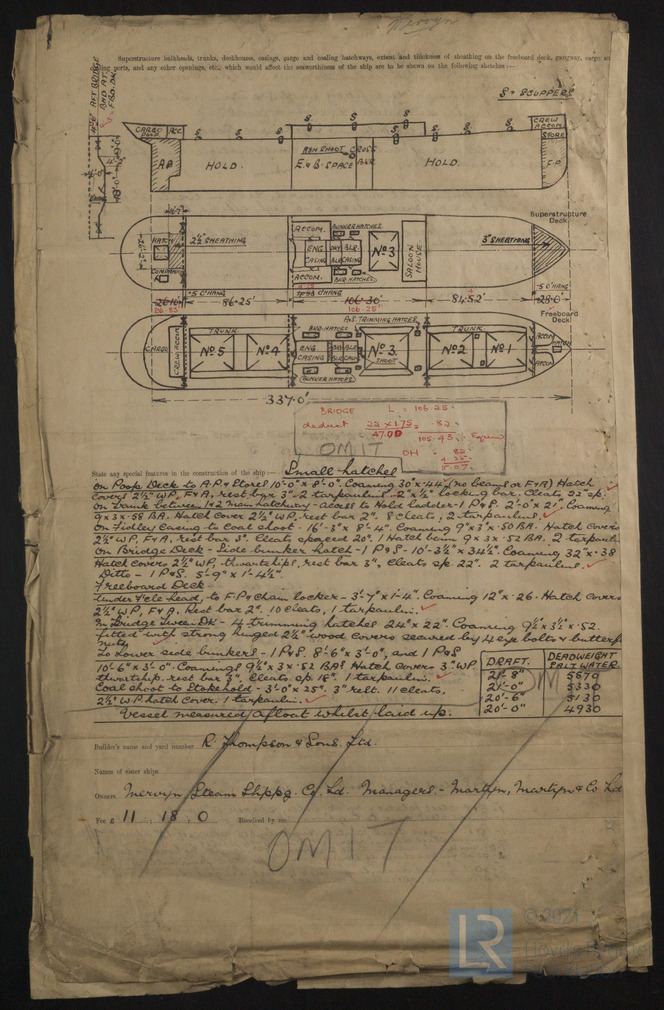 Mervyn
Superstructure bulkheads, trunks, deckhouses, casings, cargo and coaling hatchways, extent and thickness of sheathing on the freeboard deck, gangway, cargo
ports, and any other openings, etc., which would affect the seaworthiness of the ship are to be shewn on the following sketches:—
S = SCUPPERS
AFT BRIDGE
BHD AT
FBD. DK.
CARGO
POOP
ACC.
CREW
ACCOM.
STORE
S S S S S S S S S
A.P.
HOLD.
ASH SHOOT
CROSS
BKR
E. & B. SPACE
HOLD.
F.P.
Superstructure
Deck.
HATCH
COMPANION
2½" SHEATHING
ACCOM.
BUNKER HATCHES
ENG
CASING
BLR
CASING
ACCOM.
BKR HATCHES
No 3
SALOON
HOUSE
3" SHEATHING
·5 O'HANG
·5 O'HANG
26·16'
26·83'
86·25'
106·30'
106·25'
81·52'
28·0'
Freeboard
Deck.
CARGO
CREW ACCOM.
TRUNK
No 5
No 4
BKR HATCHES
A.S. TRIMMING HATCHES
ENG
CASING
BUNKER HATCHES
No 3
SHOOT
TRUNK
No 2
No 1
ACCM
ACCM
337·0'
BRIDGE L = 106·25
deduct 22 × 1.75 = ·82
47.00
105·43 Equiv
OH ·82
OM 17
State any special features in the construction of the ship:— Small hatches
On Poop Deck to A.P. & Stores 10'-0" x 8'-0". Coaming 30" x ·44 (no beams or F & A) Hatch
Covers 2½" WP, F & A, rest bar 3". 2 tarpaulins. 2" x ½" locking bar. Cleats 22" sp.
On Trunk between 1 & 2 main hatchway - access to Hold ladder - 1 P & S. 2'-0" x 21". Coaming
9 x 3 x ·58 BA. Hatch cover 2½" WP, rest bar 2". 8 cleats, 2 tarpaulins.
On Fidley Casing to Coal shoot - 16'-3" x 8'-4". Coaming 9" x 3" x ·50 BA. Hatch Covers
2½" WP, F & A, rest bar 3". Cleats spaced 20". 1 Hatch beam 9 x 3 x ·52 BA. 2 tarpaulins
On Bridge Deck - Side bunker hatch - 1 P & S - 10'-3½" x 34½". Coaming 32" x ·38
Hatch covers 2½" WP, thwartships, rest bar 3", Cleats sp. 22". 2 tarpaulins.
Ditto - 1 P & S. 5'-9" x 1'-4½".
Freeboard Deck
Under F'cle head, to F.P. & chain locker - 3'-7" x 1'-4". Coaming 12" x ·26. Hatch Covers
2½" WP, F & A. Rest bar 2". 10 cleats, 1 tarpaulin.
In Bridge 'tween Dk - 4 trimming hatches 24" x 22". Coaming 9½" x 3½" x ·52.
fitted with strong hinged 2½" wood covers secured by 4 eye bolts & butterfly
nuts.
To Lower side bunkers - 1 P & S. 8'-6" x 3'-0", and 1 P & S
10'-6" x 3'-0". Coamings 9½" x 3 x ·52 BA. Hatch Covers 3" WP
thwartship. rest bar 3". Cleats sp. 18". 1 tarpaulin.
Coal shoot to Stokehold - 3'-0" x 25". 3" rest. 11 cleats.
2½" WP hatch cover. 1 tarpaulin.
Vessel measured afloat whilst laid up.
DRAFT. DEADWEIGHT
SALT WATER.
21'-8" 5570
21'-0" 5330
20'-6" 5130
20'-0" 4930
Builder's name and yard number R. Thompson & Sons. Ltd.
Names of sister ships
Owners Mervyn Steam Shippg. Co. Ld. Managers - Martyn, Martyn & Co Ld
Fee £ 11 : 18 : 0 Received by me,
OM 17
LR
© 2021
Lloyd's Register